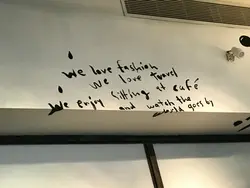 We love fashion
We love travel
We enjoy sitting at café
and watch the
world goes by